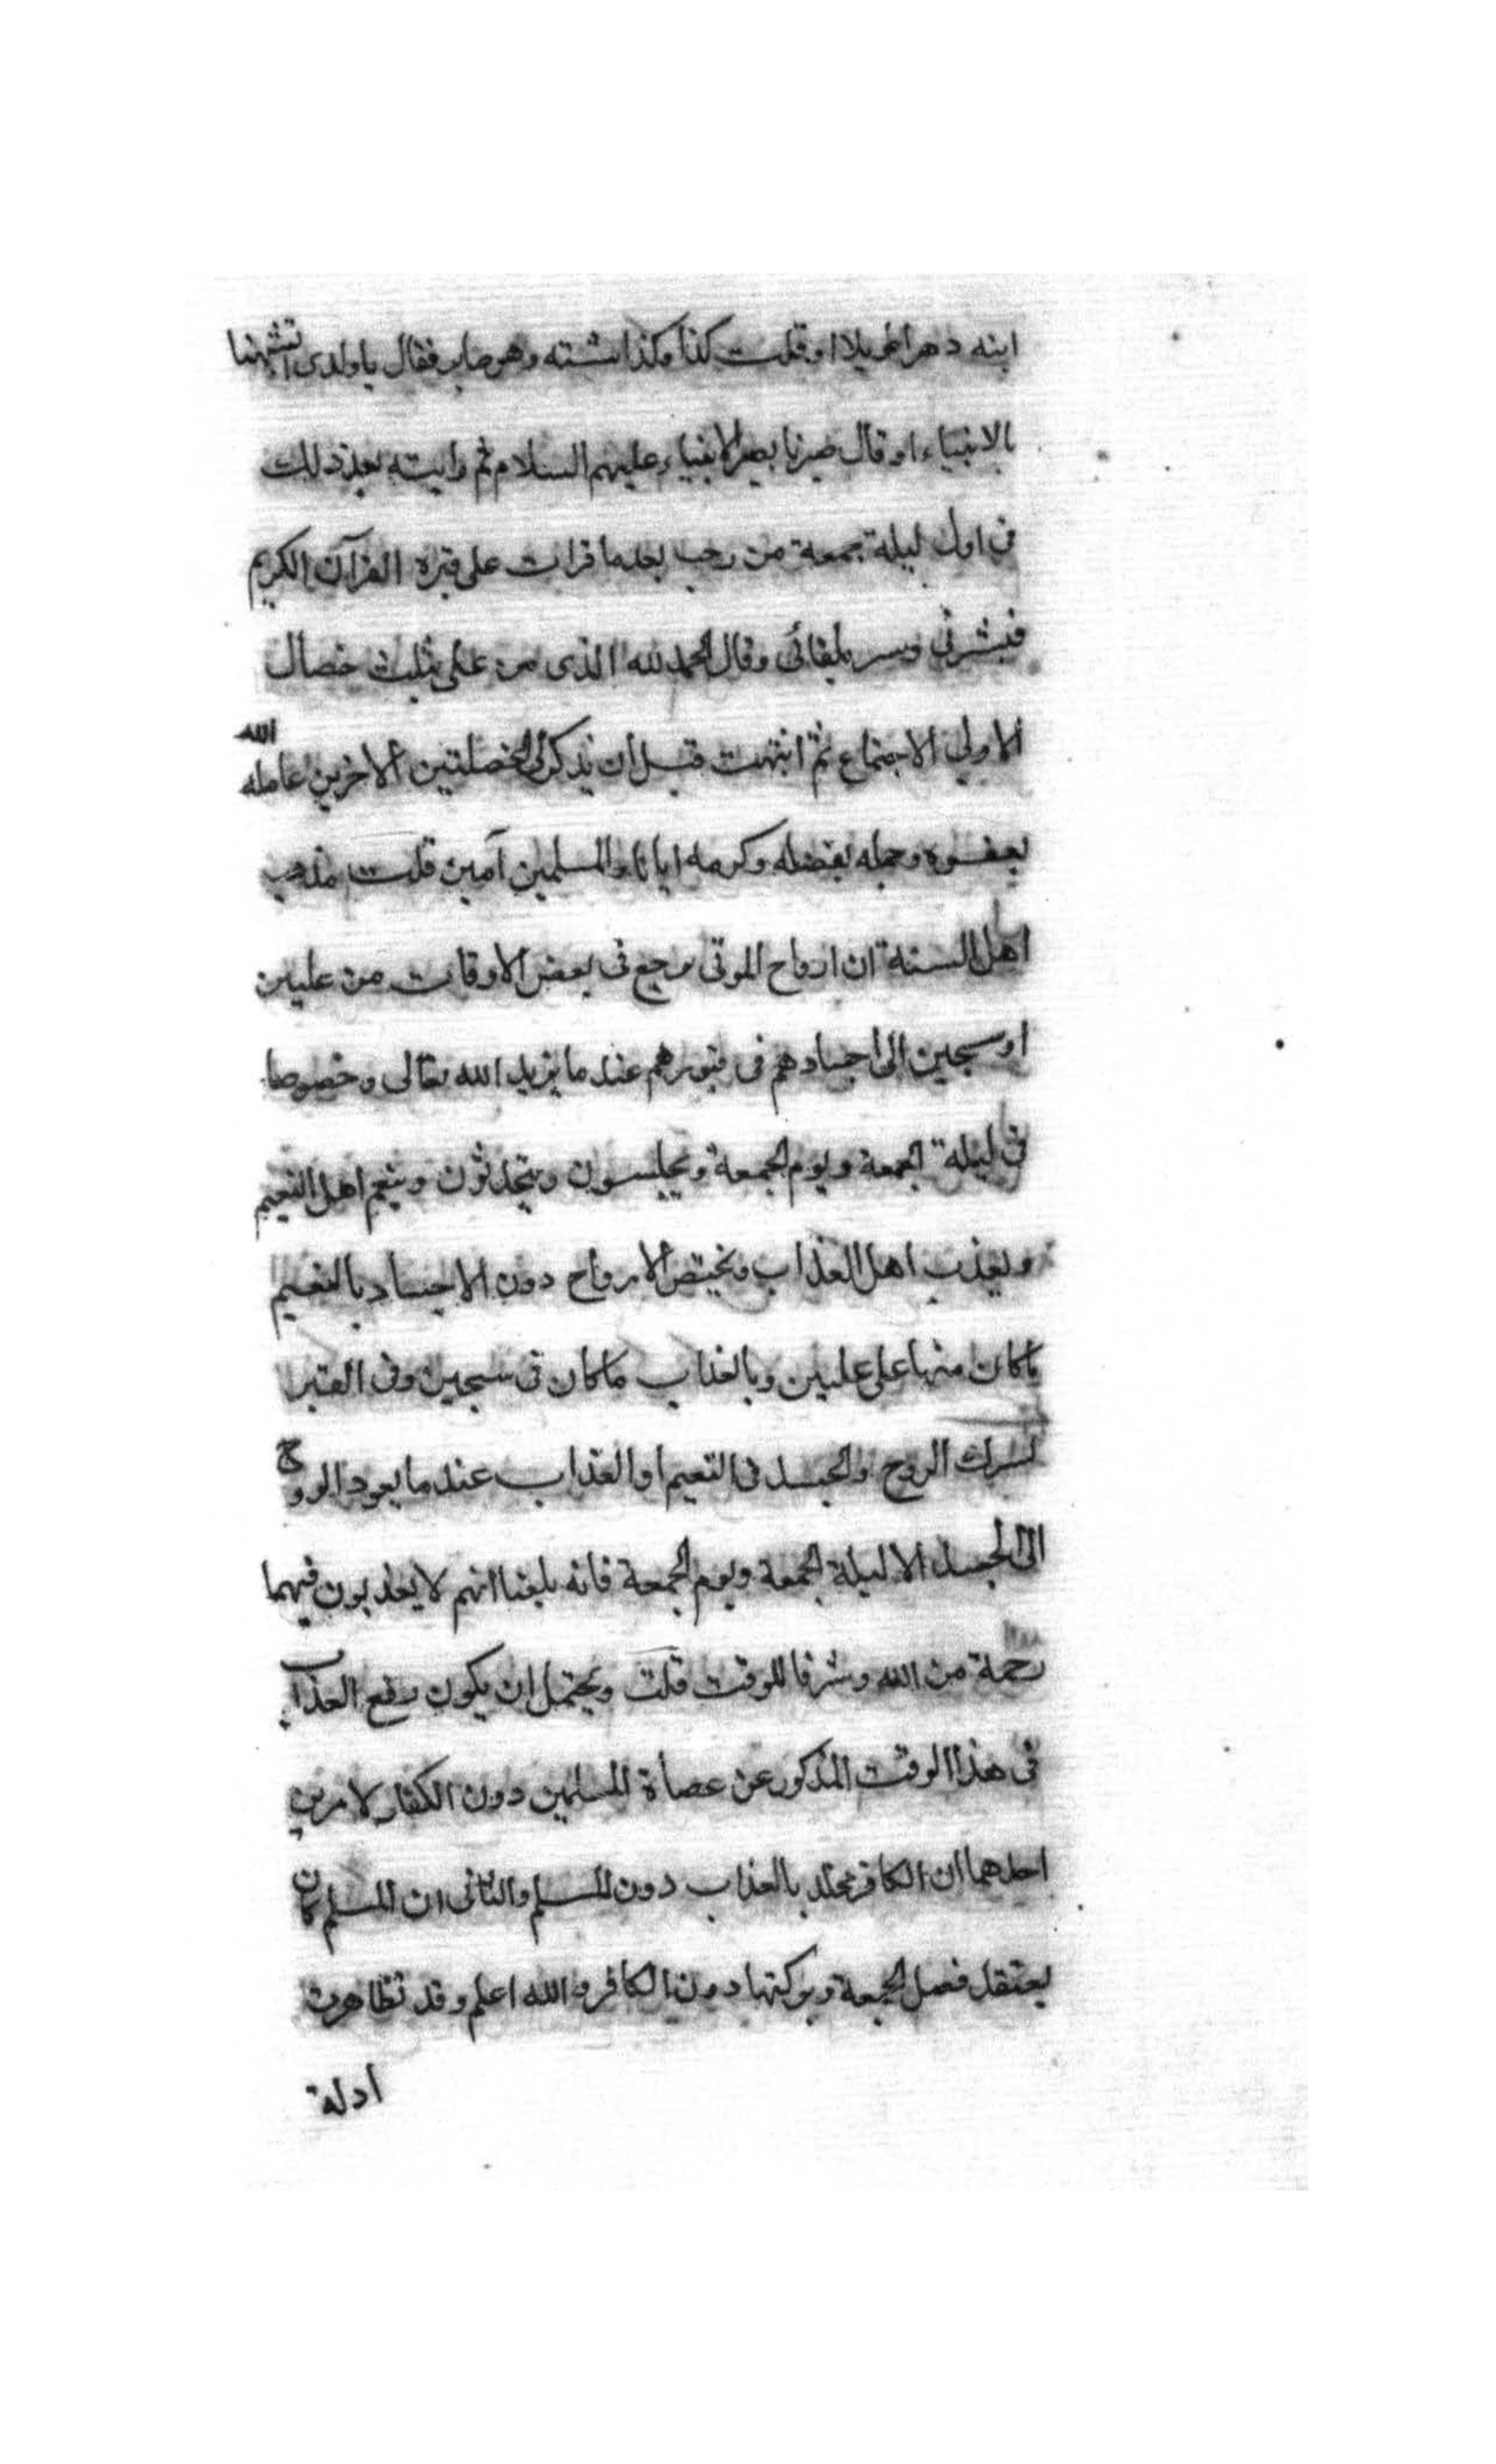 ابنه دهرا طويلا او قلت كذا وكذا سنة وهو صابر فقال يا ولدى اتشبهنا
بالانبياء او قال صبرنا بصبر الانبياء عليهم السلام ثم رايته بعد ذلك
فى اول ليلة جمعة من رجب بعد ما قرات على قبره القرآن الكريم
فبشرنى وسر بلقائى وقال الحمد لله الذى من على بثلث خصال
الاولى الاجتماع ثم انتبهت قبل ان يذكر لى الخصلتين الاخريين عامله الله
بعفوه وجمله بفضله وكرمه ايانا والمسلمين آمين قلت مذهب
اهل السنة ان ارواح الموتى ترجع فى بعض الاوقات من عليين
او سجين الى اجسادهم فى قبورهم عند ما يريد الله تعالى وخصوصا
فى ليلة الجمعة ويوم الجمعة ويجلسون ويتحدثون وينعم اهل النعيم
ويعذب اهل العذاب ويختص الارواح دون الاجساد بالنعيم
ما كان منها على عليين وبالعذاب ما كان فى سجين وفى القبر
يشترك الروح والجسد فى النعيم او العذاب عند ما يعود الروح
الى الجسد الا ليلة الجمعة ويوم الجمعة فانه بلغنا انهم لا يعذبون فيهما
رحمة من الله وشرفا للوقت قلت ويحتمل ان يكون رفع العذاب
فى هذا الوقت المذكور عن عصاة المسلمين دون الكفار لامرين
احدهما ان الكافر مخلد بالعذاب دون المسلم والثانى ان المسلم كان
يعتقد فضل الجمعة وبركتها دون الكافر والله اعلم وقد تظاهرت
ادلة